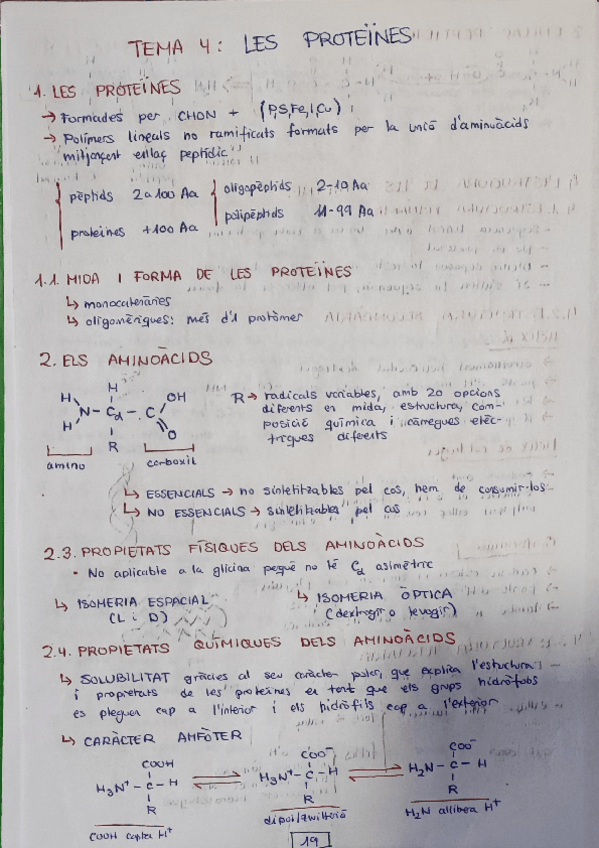 TEMA 4: LES PROTEÏNES
1. LES PROTEÏNES
→ Formades per CHON + (P,S,Fe,I,Cu)
→ Polímers lineals no ramificats formats per la unió d'aminoàcids
mitjançant enllaç peptídic
pèptids 2 a 100 Aa oligopèptids 2-10 Aa
polipèptids 11-99 Aa
proteïnes +100 Aa
1.1. MIDA I FORMA DE LES PROTEÏNES
↳ monocatenàries
↳ oligomèriques: més d'1 protòmer
2. ELS AMINOÀCIDS
H H OH
N - Cα - C
H R O
amino carboxil
R → radicals variables, amb 20 opcions
diferents en mida, estructura, com-
posició química i càrregues elèc-
triques diferents
↳ ESSENCIALS → no sintetitzables pel cos, hem de consumir-los
↳ NO ESSENCIALS → sintetitzables pel cos
2.3. PROPIETATS FÍSIQUES DELS AMINOÀCIDS
• No aplicable a la glicina perquè no té Cα asimètric
↳ ISOMERIA ESPACIAL ↳ ISOMERIA ÒPTICA
(L i D) (dextrogir o levogir)
2.4. PROPIETATS QUÍMIQUES DELS AMINOÀCIDS
↳ SOLUBILITAT gràcies al seu caràcter polar, que explica l'estructura
i propietats de les proteïnes en tant que els grups hidròfobs
es pleguen cap a l'interior i els hidròfils cap a l'exterior
↳ CARÀCTER AMFÒTER
COOH COO⁻ COO⁻
H₃N⁺ - C - H H₃N⁺ - C - H H₂N - C - H
R R R
COOH capta H⁺ dipol/zwitterió H₂N allibera H⁺
19